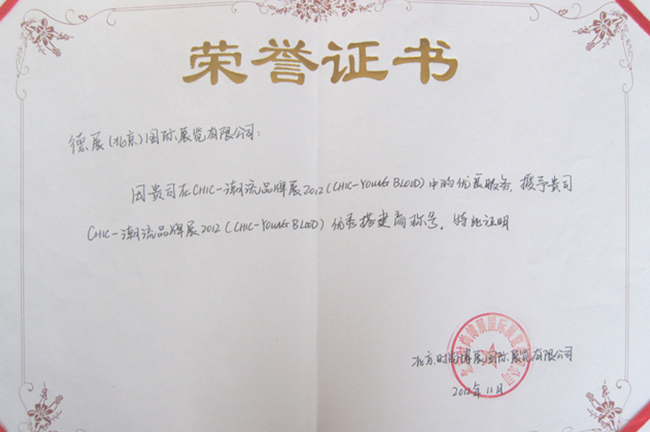 荣誉证书
德展(北京)国际展览有限公司:
因贵司在CHIC-潮流品牌展2012(CHIC-YOUNG BLOOD)中的优质服务,授予贵司
CHIC-潮流品牌展2012(CHIC-YOUNG BLOOD)优秀搭建商称号,特此证明
北京时尚博展国际展览有限公司
2012年11月